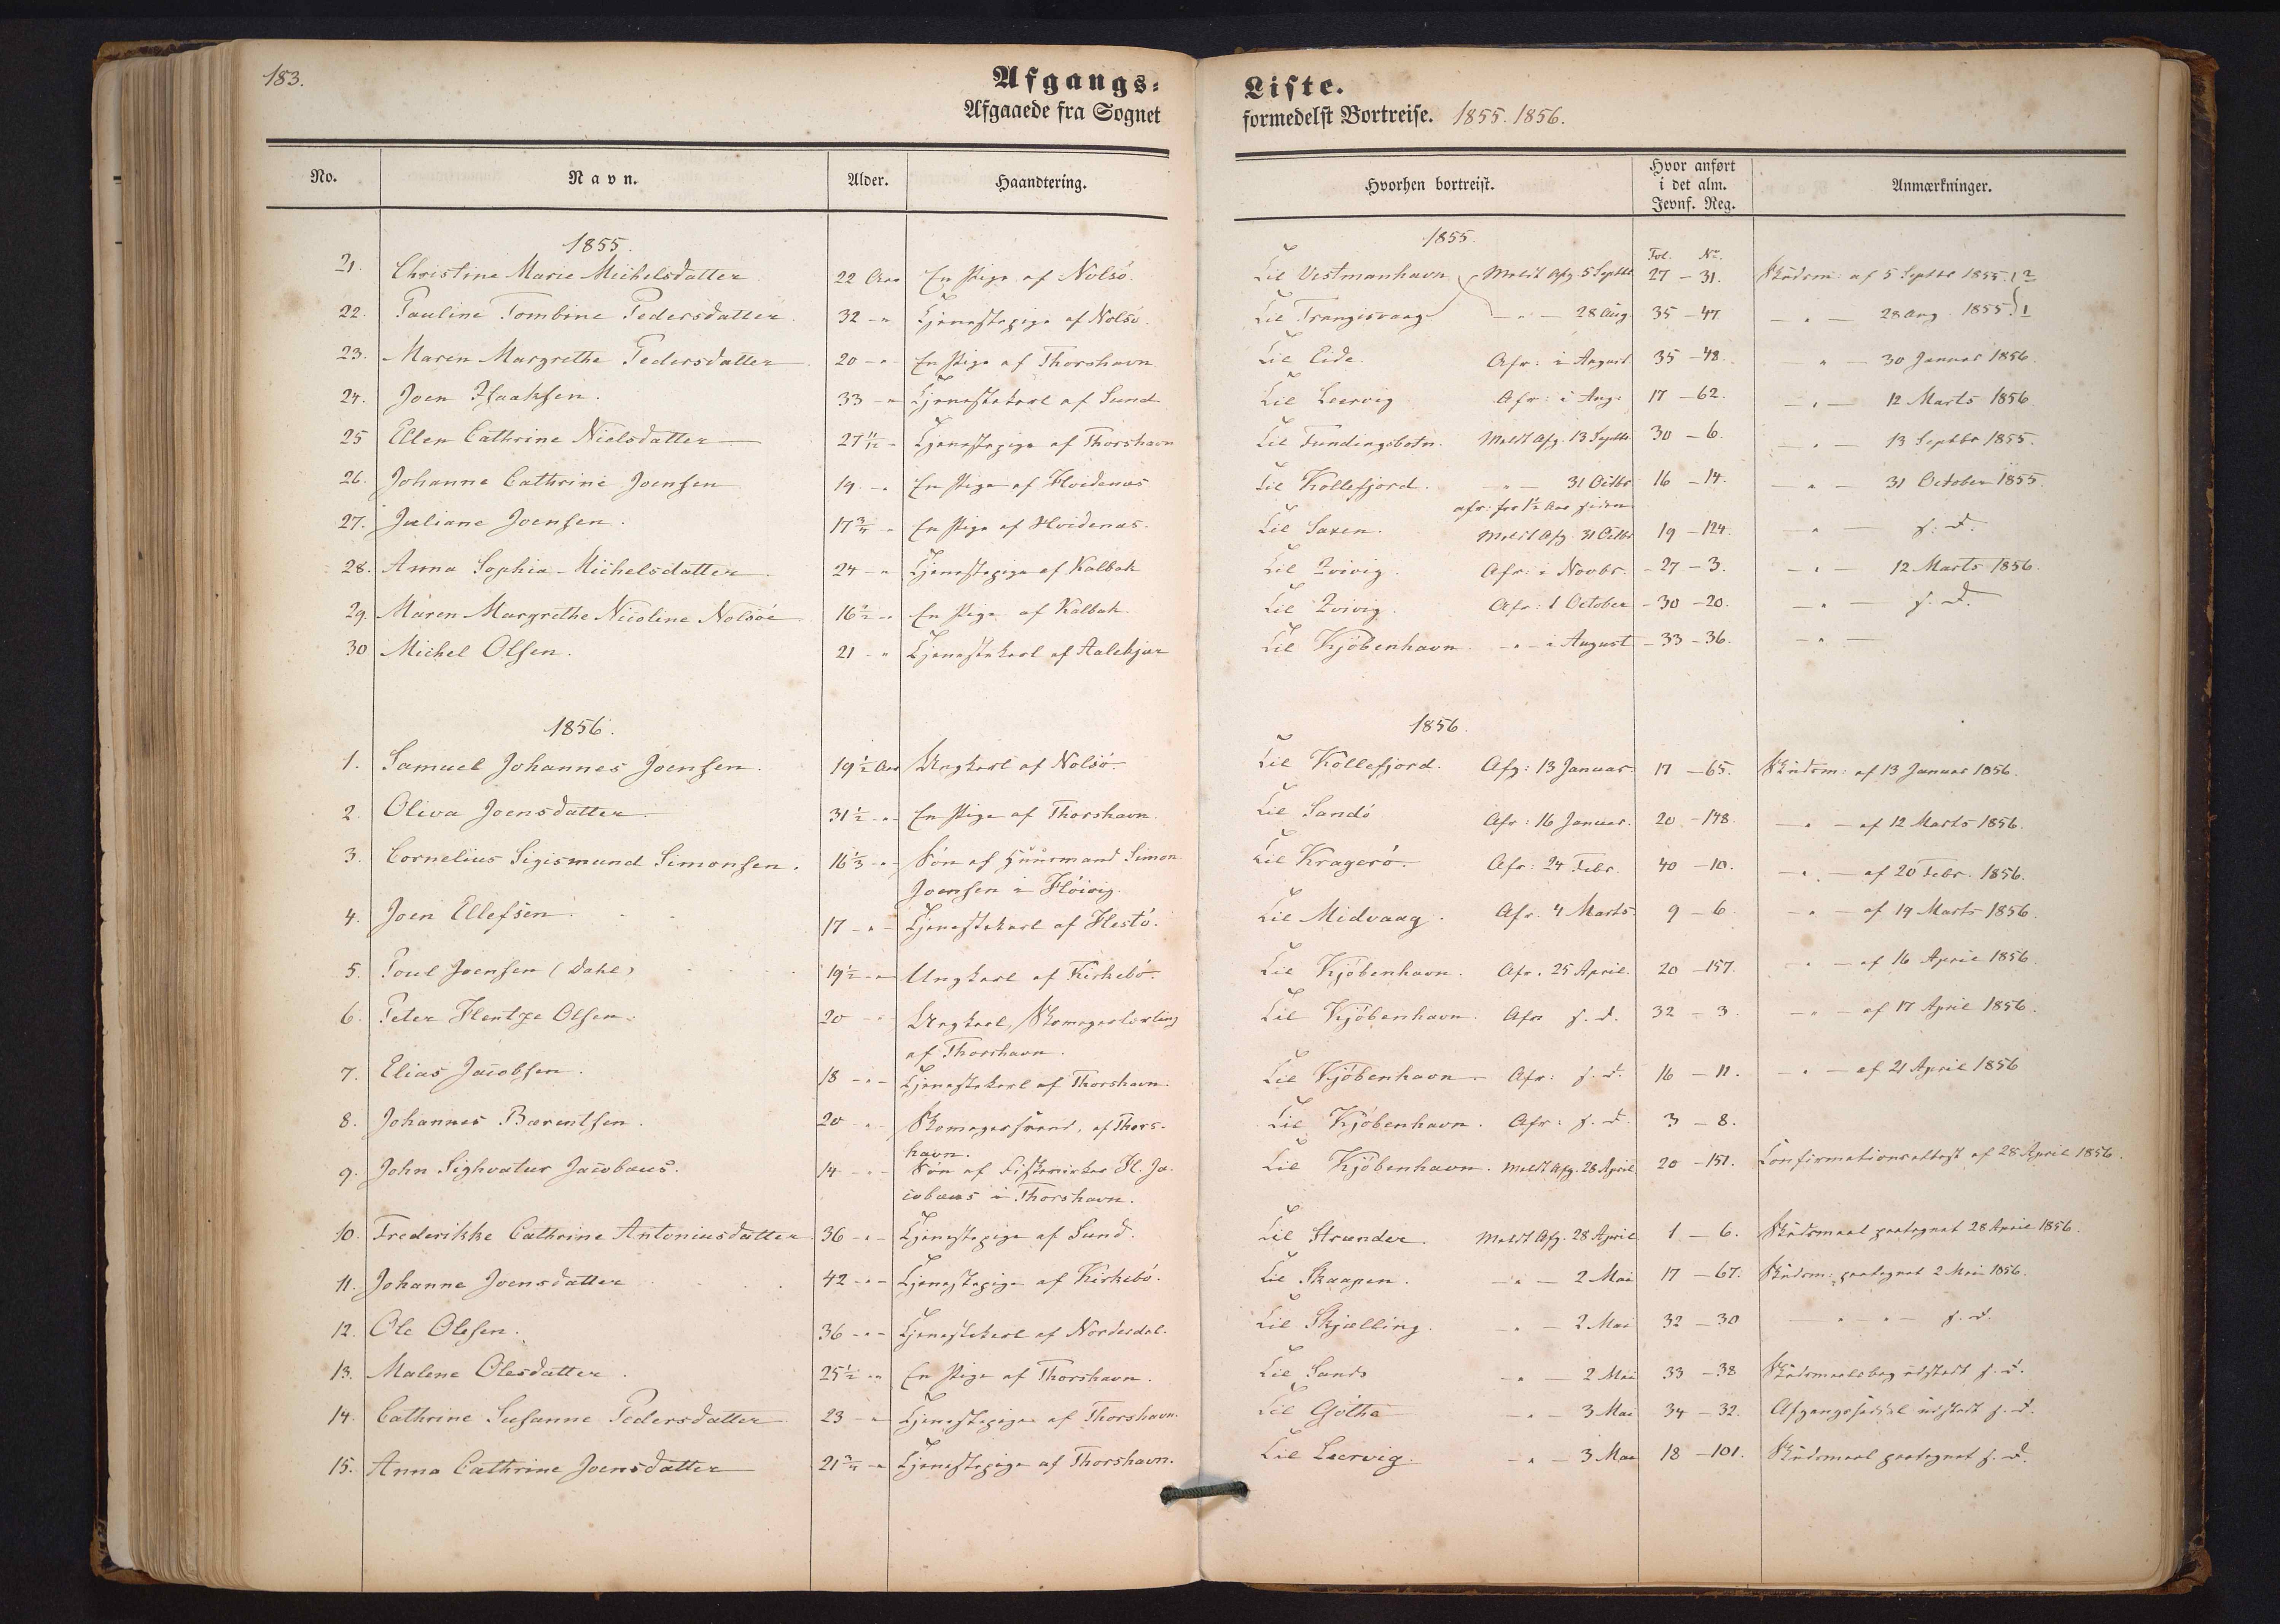 183.
Afgangs-
Afgaaede fra Sognet
Liste.
formedelst Bortreise. 1855. 1856.
No. Navn. Alder. Haandtering. Hvorhen bortreist. Hvor anført i det alm. Jevnf. Reg. Anmærkninger.
1855. 1855. Fol. No.
21. Christine Marie Michelsdatter 22 Aar En Pige af Nolsö. Til Vestmanhavn Meldt Afg. 5 Septbr. 27 - 31. Skudsm: af 5 Septbr 1855. 2
22. Pauline Tombine Pedersdatter 32 - " Tjenestepige af Nolsö. Til Trangisvaag - " - 28 Aug. 35 - 47 - " - 28 Aug. 1855. 1
23. Maren Margrethe Pedersdatter 20 - " - En Pige af Thorshavn Til Eide. Afr: i August 35 - 48. - " - 30 Januar 1856.
24. Joen Isaaksen. 33 - " Tjenestekarl af Sund Til Leervig Afr: i Aug: 17 - 62. - " - 12 Marts 1856.
25 Ellen Cathrine Nielsdatter 27 11/12 - Tjenestepige af Thorshavn Til Fundingsbotn. Meldt Afg. 13 Septbr. 30 - 6. - " - 13 Septbr 1855.
26. Johanne Cathrine Joensen 19 - " En Pige af Hvidenæs Til Kollefjord. - " - 31 Octbr 16 - 14. - " - 31 October 1855.
afr: for 1/2 Aar siden
27. Juliane Joensen. 17 3/4 - En Pige af Hvidenæs. Til Saxen. Meldt Afg. 31 Octbr 19 - 124. - " - s. d.
28. Anna Sophia Michelsdatter 24 - " Tjenestepige af Kalbak Til Qvivig. Afr: i Novbr. - 27 - 3. - " - 12 Marts 1856.
29. Maren Margrethe Nicoline Nolsöe 16 1/2 - " En Pige af Kalbak. Til Qvivig. Afr: 1 October - 30 - 20. - " - s. d.
30 Michel Olsen. 21 - " Tjenestekarl af Aalekjær Til Kjöbenhavn. - " - i August - 33 - 36. - " -
1856. 1856.
1. Samuel Johannes Joensen. 19 1/2 Aar Ungkarl af Nolsö. Til Kollefjord. Afg: 13 Januar. 17 - 65. Skudsm: af 13 Januar 1856.
2. Oliva Joensdatter 31 1/2 - " - En Pige af Thorshavn. Til Sandö Afr: 16 Januar. 20 - 148. - " - af 12 Marts 1856.
3. Cornelius Sigismund Simonsen. 16 1/3 - " - Sön af Huusmand Simon Til Kragerö. Afr: 24 Febr. 40 - 10. - " - af 20 Febr. 1856.
Joensen i Höivig.
4. Joen Ellefsen. 17 - " - Tjenestekarl af Hestö. Til Midvaag. Afr. 4 Marts. 9 - 6. - " - af 19 Marts 1856.
5. Poul Joensen (Dahl) 19 1/2 - " Ungkarl af Kirkebö. Til Kjöbenhavn. Afr. 25 April. 20 - 157. - " - af 16 April 1856.
6. Peter Hentze Olsen. 20 - " Ungkarl, Skomagerlærling Til Kjöbenhavn. Afr s. d. 32 - 3. - " - af 17 April 1856.
af Thorshavn.
7. Elias Jacobsen. 18 - " - Tjenestekarl af Thorshavn. Til Kjöbenhavn. Afr: s. d. 16 - 11. - " - af 21 April 1856
8. Johannes Bærentsen. 20 - " Skomagersvend, af Thors- Til Kjöbenhavn. Afr: s. d. 3 - 8.
havn.
9. John Sighvatur Jacobæus. 14 - " - Sön af H. Ja- Til Kjöbenhavn. Meldt Afg. 28 April 20 - 151. Confirmationsattest af 28 April 1856.
cobæus i Thorshavn.
10. Frederikke Cathrine Antoniusdatter. 36 - " - Tjenestepige af Sund. Til Strænder. Meldt Afg. 28 April 1 - 6. Skudsmaal paategnet 28 April 1856.
11. Johanne Joensdatter 42 - " - Tjenestepige af Kirkebö. Til Skaapen. - " - 2 Mai 17 - 67. Skudsm: paategnet 2 Mai 1856.
12. Ole Olesen. 36 - " - Tjenestekarl af Norderdal. Til Skjælling. - " - 2 Mai 32 - 30 - " - " - s. d.
13. Malene Olesdatter. 25 1/2 - " En Pige af Thorshavn. Til Sandö - " - 2 Mai 33 - 38 Skudsmaalsbog udstedt s. d.
14. Cathrine Susanne Pedersdatter 23 - " Tjenestepige af Thorshavn. Til Göthe - " - 3 Mai 34 - 32. Afgangsseddel udstedt s. d.
15. Anna Cathrine Joensdatter 21 3/4 - " Tjenestepige af Thorshavn. Til Leervig. - " - 3 Mai 18 - 101. Skudsmaal paategnet s. d.